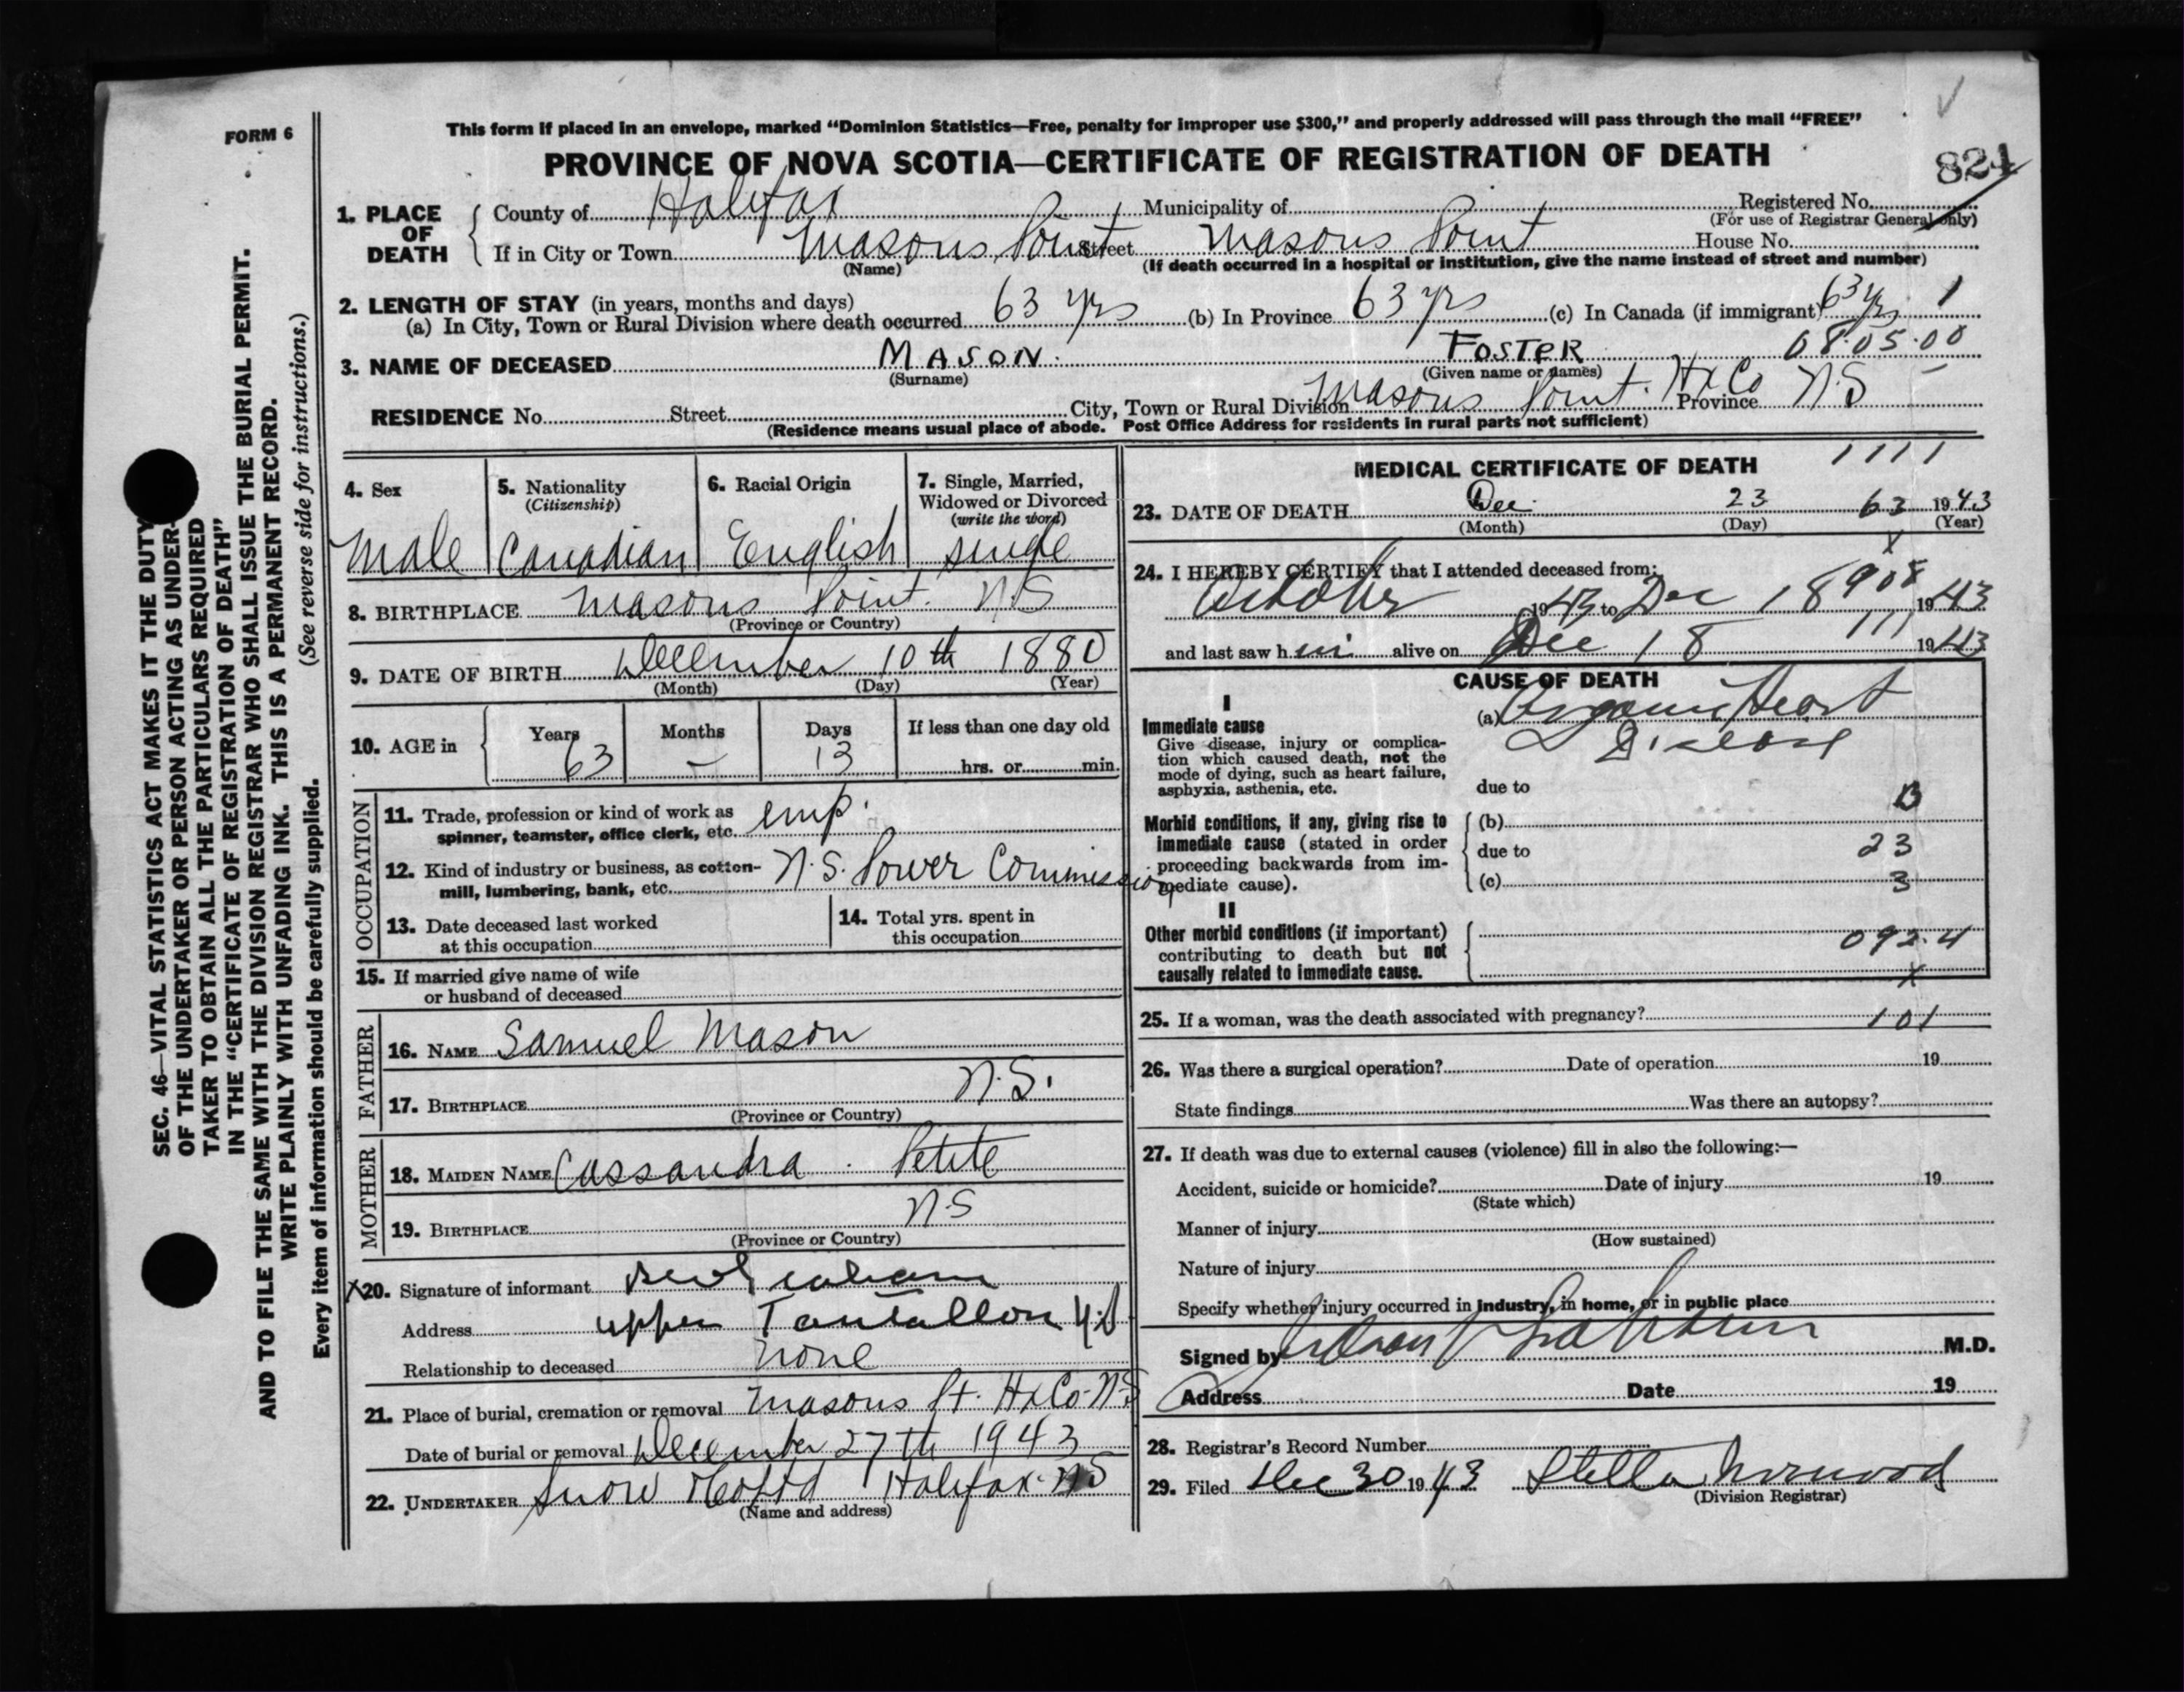 FORM 6
This form if placed in an envelope, marked “Dominion Statistics—Free, penalty for improper use $300,” and properly addressed will pass through the mail “FREE”
PROVINCE OF NOVA SCOTIA—CERTIFICATE OF REGISTRATION OF DEATH
824
1. PLACE OF DEATH
County of Halifax Municipality of Registered No.
(For use of Registrar General only)
If in City or Town Masons Point Street Masons Point House No.
(Name) (If death occurred in a hospital or institution, give the name instead of street and number)
2. LENGTH OF STAY (in years, months and days)
(a) In City, Town or Rural Division where death occurred 63 yrs (b) In Province 63 yrs (c) In Canada (if immigrant) 63 yrs 1
3. NAME OF DECEASED MASON FOSTER 08.05.00
(Surname) (Given name or names)
RESIDENCE No. Street City, Town or Rural Division Masons Point. Hx Co Province N.S
(Residence means usual place of abode. Post Office Address for residents in rural parts not sufficient)
4. Sex
Male
5. Nationality
(Citizenship)
Canadian
6. Racial Origin
English
7. Single, Married,
Widowed or Divorced
(write the word)
single
8. BIRTHPLACE Masons Point. N.S
(Province or Country)
9. DATE OF BIRTH December 10th 1880
(Month) (Day) (Year)
10. AGE in Years Months Days If less than one day old
63 — 13 hrs. or min.
OCCUPATION
11. Trade, profession or kind of work as
spinner, teamster, office clerk, etc. emp.
12. Kind of industry or business, as cotton-
mill, lumbering, bank, etc. N.S. Power Commission
13. Date deceased last worked
at this occupation
14. Total yrs. spent in
this occupation
15. If married give name of wife
or husband of deceased
FATHER
16. NAME Samuel Mason
17. BIRTHPLACE N.S.
(Province or Country)
MOTHER
18. MAIDEN NAME Cassandra Petite
19. BIRTHPLACE N.S
(Province or Country)
X20. Signature of informant
Address upper Tantallon
Relationship to deceased none
21. Place of burial, cremation or removal Masons Pt. Hx Co. N.S
Date of burial or removal December 27th 1943
22. UNDERTAKER Snow & Co Ltd Halifax. N.S
(Name and address)
MEDICAL CERTIFICATE OF DEATH 1111
23. DATE OF DEATH Dec 23 63 1943
(Month) (Day) (Year)
X
24. I HEREBY CERTIFY that I attended deceased from:
October 1943 to Dec 18 908 1943
and last saw h im alive on Dec 18 111 1943
CAUSE OF DEATH
I
Immediate cause
Give disease, injury or complica-
tion which caused death, not the
mode of dying, such as heart failure,
asphyxia, asthenia, etc.
(a) Organic Heart
Disease
due to
B
Morbid conditions, if any, giving rise to
immediate cause (stated in order
proceeding backwards from im-
mediate cause).
(b)
due to 23
(c) 3
II
Other morbid conditions (if important)
contributing to death but not
causally related to immediate cause.
092.4
X
25. If a woman, was the death associated with pregnancy? 101
26. Was there a surgical operation? Date of operation 19
State findings Was there an autopsy?
27. If death was due to external causes (violence) fill in also the following:—
Accident, suicide or homicide? Date of injury 19
(State which)
Manner of injury
(How sustained)
Nature of injury
Specify whether injury occurred in industry, in home, or in public place
Signed by M.D.
Address Date 19
28. Registrar's Record Number
29. Filed Dec 30 1943 Stella Norwood
(Division Registrar)
SEC. 46—VITAL STATISTICS ACT MAKES IT THE DUTY
OF THE UNDERTAKER OR PERSON ACTING AS UNDER-
TAKER TO OBTAIN ALL THE PARTICULARS REQUIRED
IN THE “CERTIFICATE OF REGISTRATION OF DEATH”
AND TO FILE THE SAME WITH THE DIVISION REGISTRAR WHO SHALL ISSUE THE BURIAL PERMIT.
WRITE PLAINLY WITH UNFADING INK. THIS IS A PERMANENT RECORD.
(See reverse side for instructions.)
Every item of information should be carefully supplied.